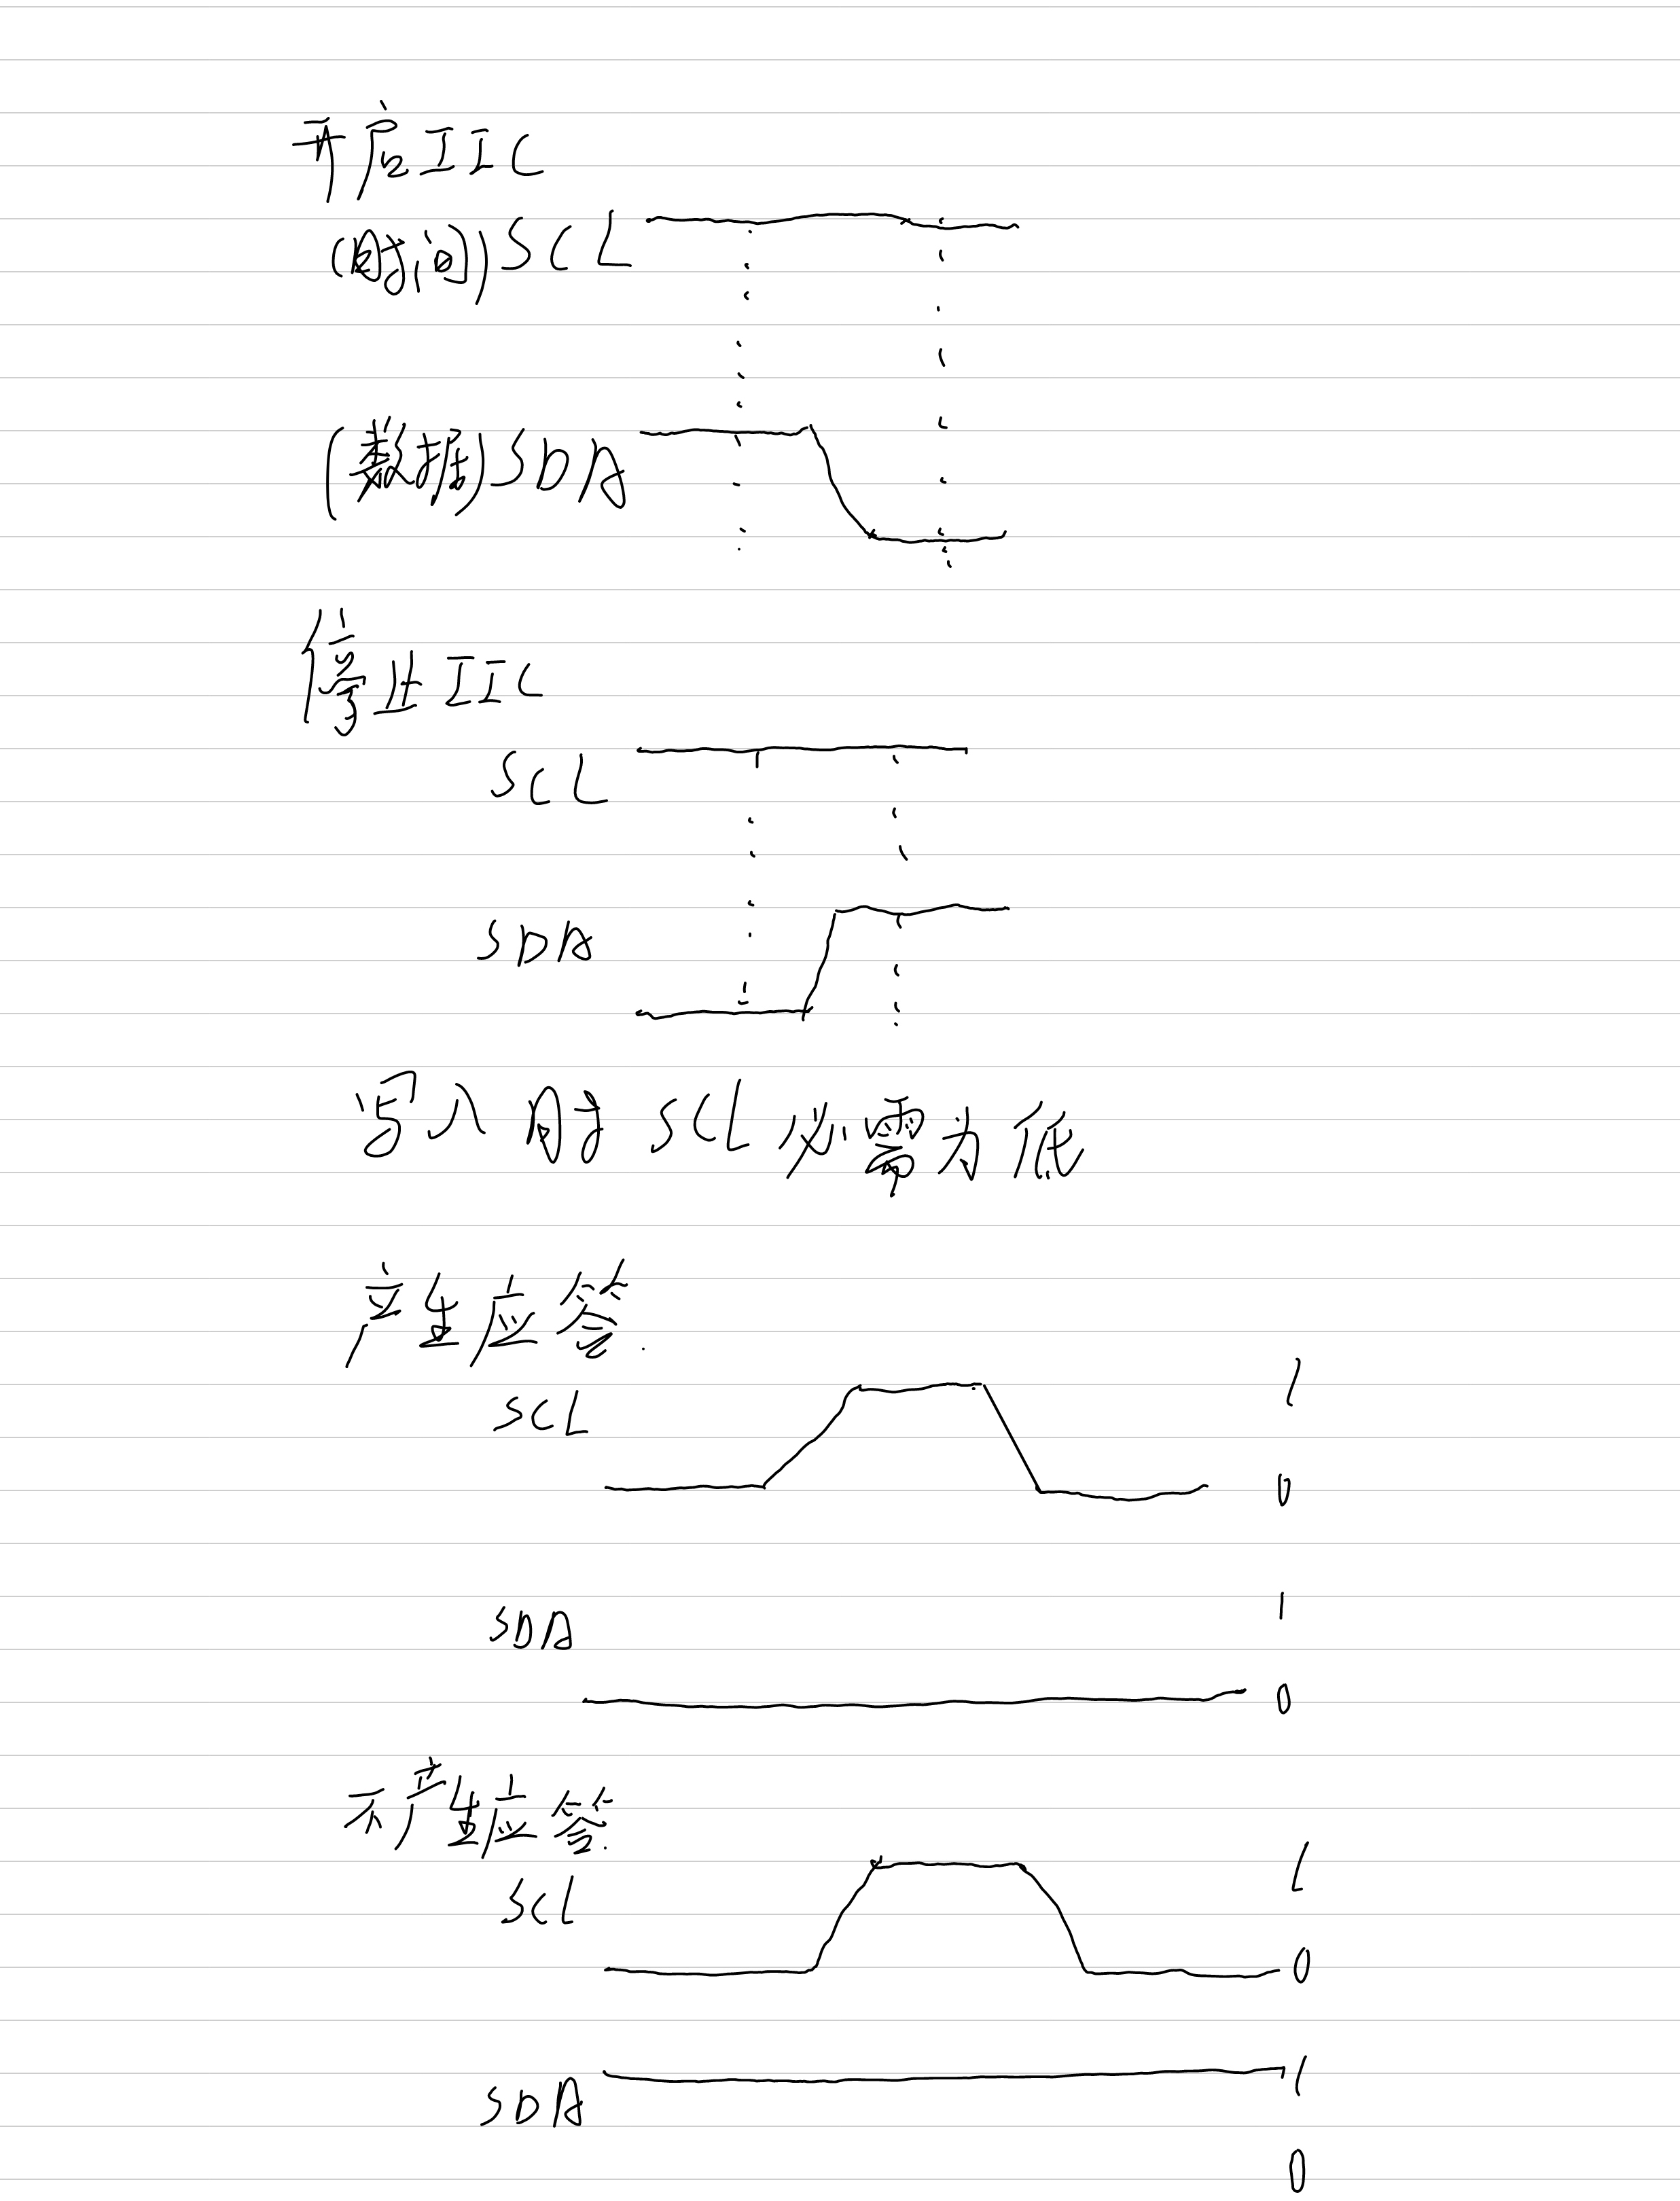 开启IIC
(时间)SCL
(数据)SDA
停止IIC
SCL
SDA
写入时SCL必需为低
产生应答.
SCL 1
0
1
SDA
0
不产生应答.
SCL 1
0
SDA 1
0